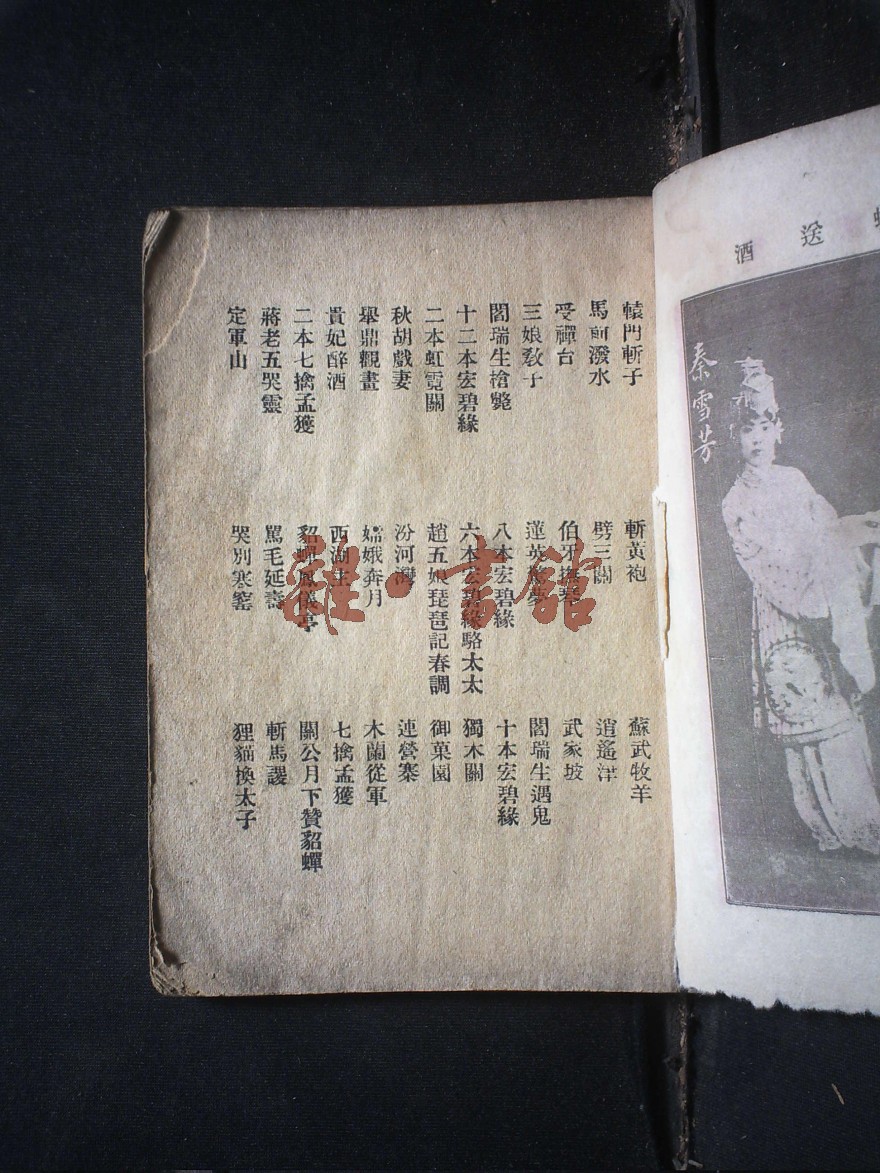 轅門斬子 斬黃袍 蘇武牧羊
馬前潑水 劈三關 逍遙津
受禪台 伯牙撫琴 武家坡
三娘敎子 蓮英驚夢 閻瑞生遇鬼
閻瑞生槍斃 八本宏碧緣 十本宏碧緣
十二本宏碧緣 六本宏碧緣駱太太 獨木關
二本虹霓關 趙五娘琵琶記春調 御菓園
秋胡戲妻 汾河灣 連營寨
舉鼎觀畫 嫦娥奔月 木蘭從軍
貴妃醉酒 西湖主 七擒孟獲
二本七擒孟獲 貂蟬鳳儀亭 關公月下贊貂蟬
蔣老五哭靈 罵毛延壽 斬馬謖
定軍山 哭別寒窰 狸貓換太子
送酒
秦雪芳
雜·書館